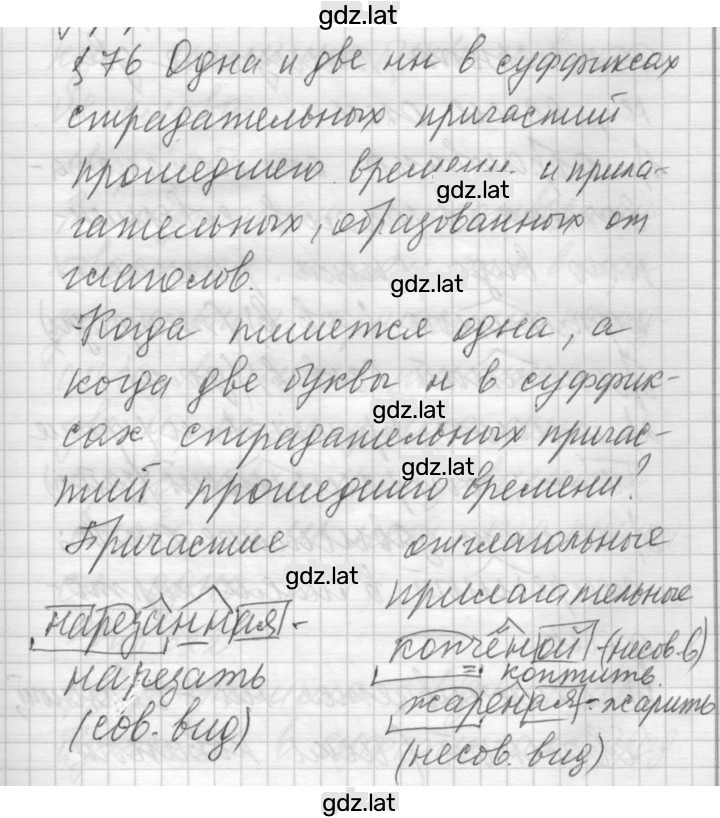 gdz.lat
§ 76 Одна и две нн в суффиксах
страдательных причастий
прошедшего времени и прила-
gdz.lat
гательных, образованных от
глаголов.
gdz.lat
Когда пишется одна, а
когда две буквы н в суффик-
gdz.lat
сах страдательных причас-
gdz.lat
тий прошедшего времени?
Причастие
нарезанная -
нарезать
(сов. вид)
отглагольные
gdz.lat
прилагательные
копчёной - (несов. в)
коптить.
жареная - жарить
(несов. вид)
gdz.lat